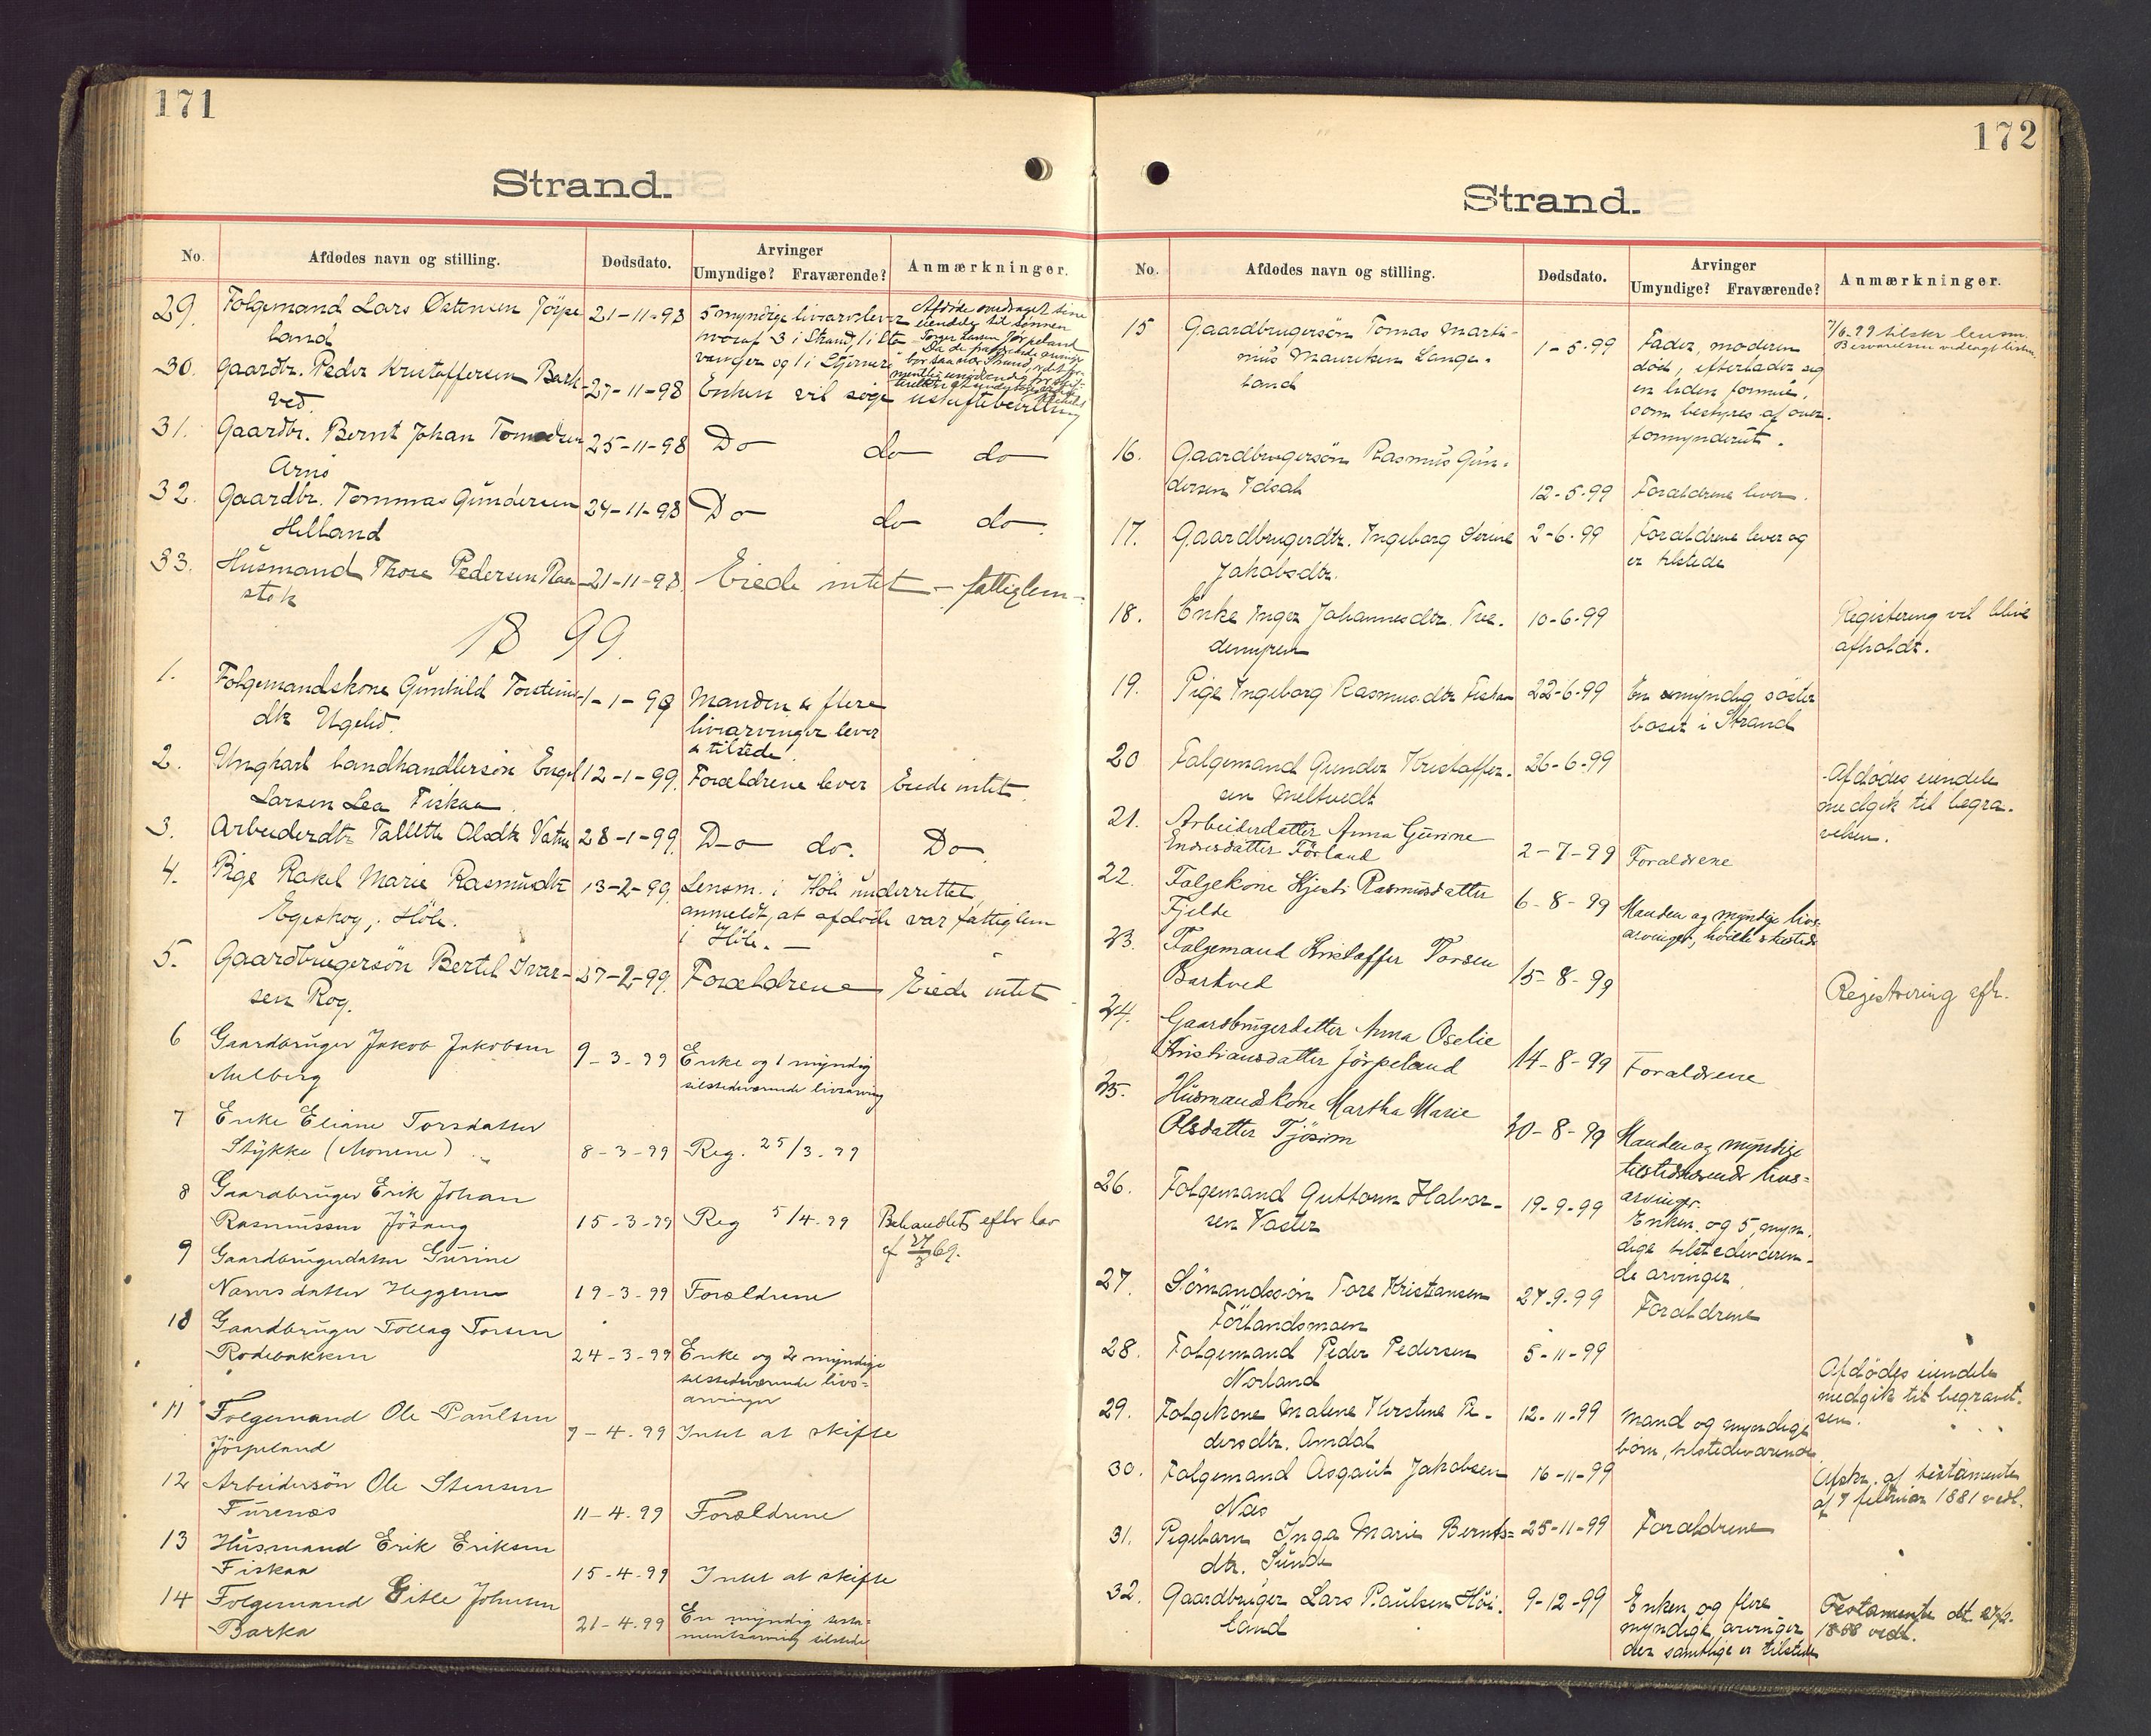 171
Strand.
No.
Afdødes navn og stilling.
Dødsdato.
Arvinger
Umyndige? Fraværende?
Anmærkninger.
29. Folgemand Lars Østensen Jörpe 21-11-98 5 myndige livsarvinger Afdøde overdraget sine
land hvoraf 3 i Strand, 1 i Sta eiendele til sönnen
vanger og 1 i Stjernerö Torger Larsen Jørpeland
30. Gaardbr. Peder Kristoffersen Bark 27-11-98 Enken vil søge uskiftebevilling
ved.
31. Gaardbr. Bernt Johan Tomodsen 25-11-98 Do do do
Arnö
32. Gaardbr. Tommas Gundersen 24-11-98 Do do do.
Helland
33. Husmand Thore Pedersen 21-11-98 Eiede intet - fattiglem -
stok
1899.
1. Folgemandskone Gunhild Torsteins 1-1-99 Manden & flere
dtr Ugelid. livsarvinger lever
& tilstede
2. Ungkarl landhandlersön Engel 12-1-99. Forældrene lever Eiede intet.
Larsen Lea Fiskaa.
3. Arbeiderdtr Tallette Olsdtr Vatne 28-1-99. Do do. Do.
4. Pige Rakel Marie Rasmusdtr 13-2-99. Lensm. i Höle underrettet,
Egeskog, Höle. anmeldt, at afdöde var fattiglem
i Höle. -
5. Gaardbrugersön Bertel Ivar- 27-2-99. Forældrene Eiede intet
sen Rog.
6 Gaardbruger Jakob Jakobsen 9-3-99 Enke og 1 myndig
Aulberg tilstedeværende livsarving
7 Enke Eliane Torsdatter
Stykke (Monene) 8-3-99 Reg. 25/3.99
8 Gaardbruger Erik Johan
Rasmussen Jösang 15-3-99 Reg 5/4.99 Behandlet efter lov
af 69.
9 Gaardbrugerdatter Gurine
datter Heggem 19-3-99 Forældrene
10 Gaardbruger Tollag Torsen
Rodebakken 24-3-99 Enke og 2 myndige
tilstedeværende livs=
arvinger
11 Folgemand Ole Paulsen
Jörpeland 7-4.99 Intet at skifte
12 Arbeidersön Ole Stensen
Furenæs 11-4.99 Forældrene
13 Husmand Erik Eriksen
Fiskaa 15-4.99 Intet at skifte
14 Folgemand Gitle Johnsen
Barka 21-4.99 En myndig testa=
mentsarving tilstede
172
Strand.
No.
Afdødes navn og stilling.
Dødsdato.
Arvinger
Umyndige? Fraværende?
Anmærkninger.
15 Gaardbrugersön Tomas Marti- 1-5-99 Fader, moderen
nius Mauritsen Lange- död, efterlader sig
land en liden formue,
som bestyres af over-
formynderiet.
16. Gaardbrugersön Rasmus Gun-
dersen Idsal 12-5-99 Forældrene lever.
17. Gaardbrugerdtr. Ingeborg Serine 2-6-99 Forældrene lever og
Jakobsdtr. er tilstede
18. Enke Inger Johannesdtr. Tve- 10-6-99 Registrering vil blive
demyren afholdt.
19. Pige Ingeborg Rasmusdtr Fiskaa 22-6-99 En umyndig söster
bosat i Strand
20 Folgemand Gunder Kristoffer- 26-6-99 Afdödes eiendele
sen Meltvedt medgik til begra-
velsen.
21. Arbeiderdatter Anna Gurine
Endresdatter Förland 2-7-99 Forældrene
22. Folgekone Kjersti Rasmusdatter 6-8-99 Manden og myndige livs-
Fjelde arvinger, hvilke tilstede
23. Folgemand Kristoffer Torsen
Barkved 15-8-99 Registrering afh.
24. Gaardbrugerdatter Anna Oselie
Kristiansdatter Jörpeland 14-8-99 Forældrene
25. Husmandskone Martha Marie
Olsdatter Tjösem 30-8-99 Manden og myndige
tilstedeværende livs=
arvinger.
26. Folgemand Guttorm Halvor- 19-9-99 Enken og 5 myn-
sen Vaster dige tilstedeværen-
de arvinger.
27. Sömandssön Tore Kristansen 27.9.99 Forældrene
Förlandsmoen
28. Folgemand Peder Pedersen 5-11-99 Afdödes eiendele
Norland medgik til begravel-
sen.
29. Folgekone Malene Kirstine Pe- 12-11-99 Mand og myndige
dersdtr. Amdal börn, tilstedeværende
30. Folgemand Asgaut Jakobsen 16-11-99 Afskr. af testamente
Næs af 7 februar 1881 vedl.
31. Pigebarn Inga Marie Bernts= 25-11-99 Forældrene
dtr. Sunde
32. Gaardbruger Lars Paulsen Höi- 9-12-99 Enken og flere Testamente dt.
land myndige arvinger 1888 vedl.
der samtlige er tilstede